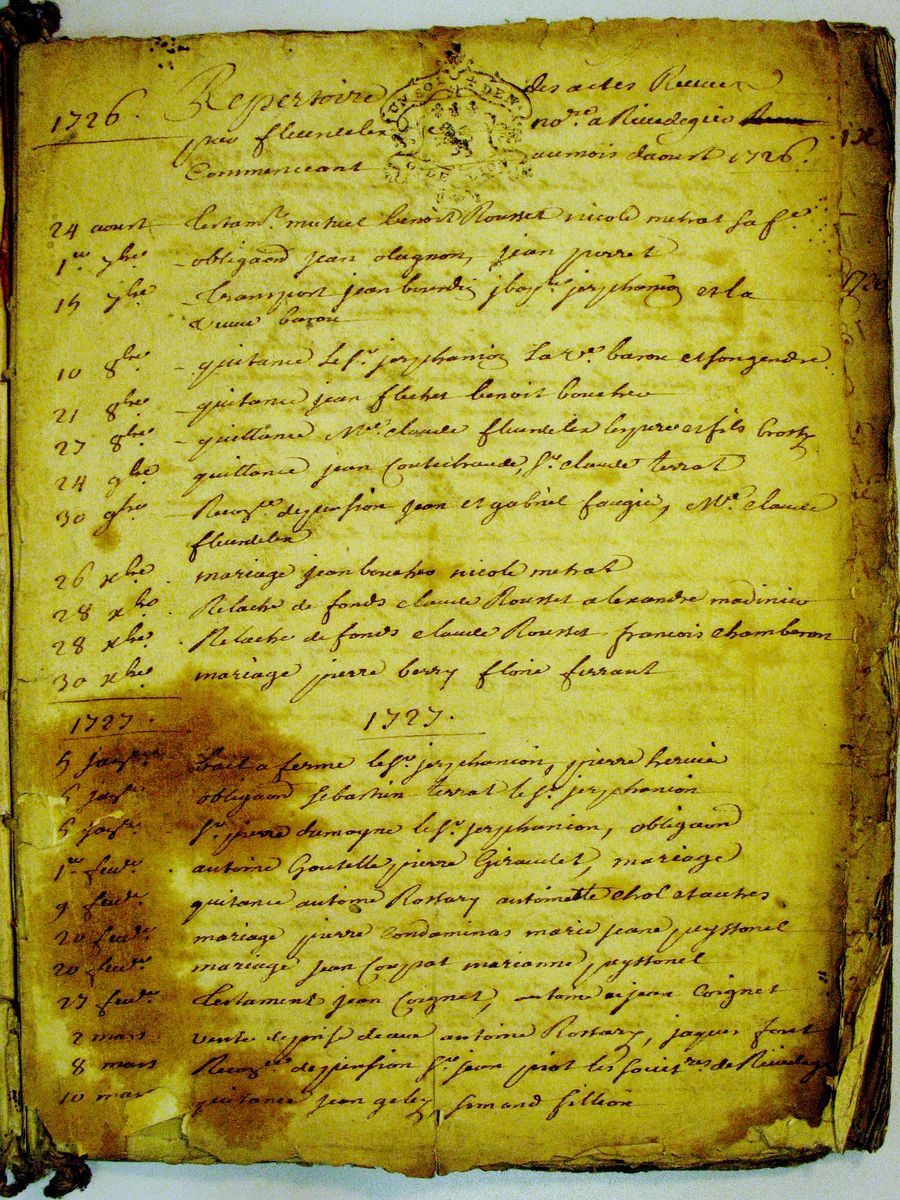 1726. Repertoire des actes Receus
par fleurdelix no.re a Rivedegier
Commenceant au mois daoust 1726.
UN SOL DEN
24 aoust – testam.t mutuel benoit Rousset nicole metrat sa f.e
1.er 7bre – obligaõn jean olagnon, jean porret
15 7bre – transport jean jerphanion et la
veuve baron
10 8bre – quitance le S.r jerphanion la v.e baron et son gendre
21 8bre – quitance jean flechet benoit bouchro
27 8bre – quittance M.e claude fleurdelix les pere et fils
24 9bre quittance jean S.r claude terrat
30 9bre – de pension jean et gabriel faugie, M.e claude
fleurdelix
26 xbre . mariage jean bouchro nicole metrat
28 xbre . Relache de fonds claude Rousset alexandre
28 xbre . Relache de fonds claude Rousset francois chambeyron
30 xbre . mariage pierre berry florie ferrant
1727. 1727.
5 bail a ferme le S.r jerphanion, pierre hervié
obligaõn sebastien terrat le S.r jerphanion
5 S.r pierre dumayne le S.r jerphanion, obligaõn
1.er fev.r . antoine Goutelle pierre Giraudet, mariage
9 fev.r quitance antoine Rossary antoinette chol et autres
20 fev.r mariage pierre condaminas marie jeane peyssonel
20 fev.r mariage jean Coupat marianne peyssonel
27 fev.r testament jean Coignet, antoine et jean Coignet
2 mars vente de prise deaux antoine Rossary, jaques font
8 mars de pension S.r jean les de Rivedegier
10 mars quitance jean simond fillion